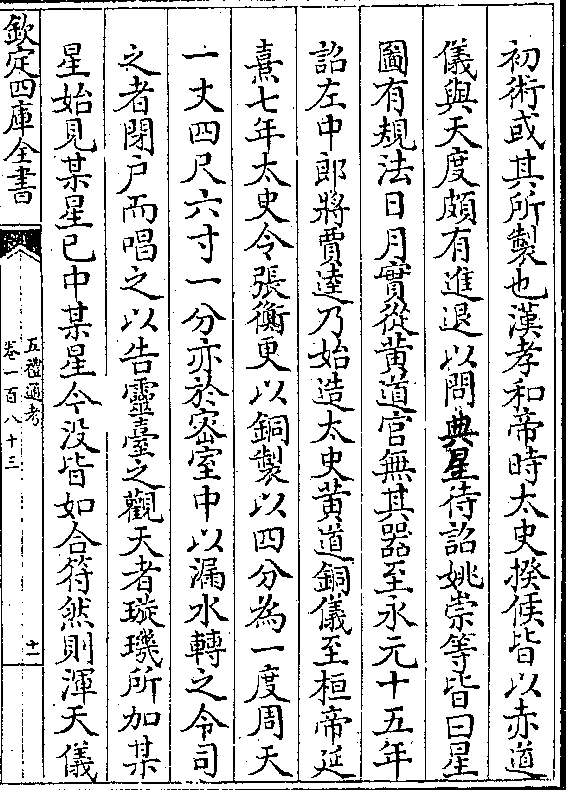 初術或其所製也漢孝和帝時太史揆候皆以赤道
儀與天度頗有進退以問典星待詔姚崇等皆曰星
圖有規法日月實從黄道官無其器至永元十五年
詔左中郎將賈逵乃始造太史黄道銅儀至桓帝延
熹七年太史令張衡更以銅製以四分為一度周天
一丈四尺六寸一分亦於密室中以漏水轉之令司
之者閉户而唱之以告靈臺之觀天者璇璣所加某
星始見某星已中某星今没皆如合符然則渾天儀
欽定四庫全書
五禮通考
卷一百八十三
十一